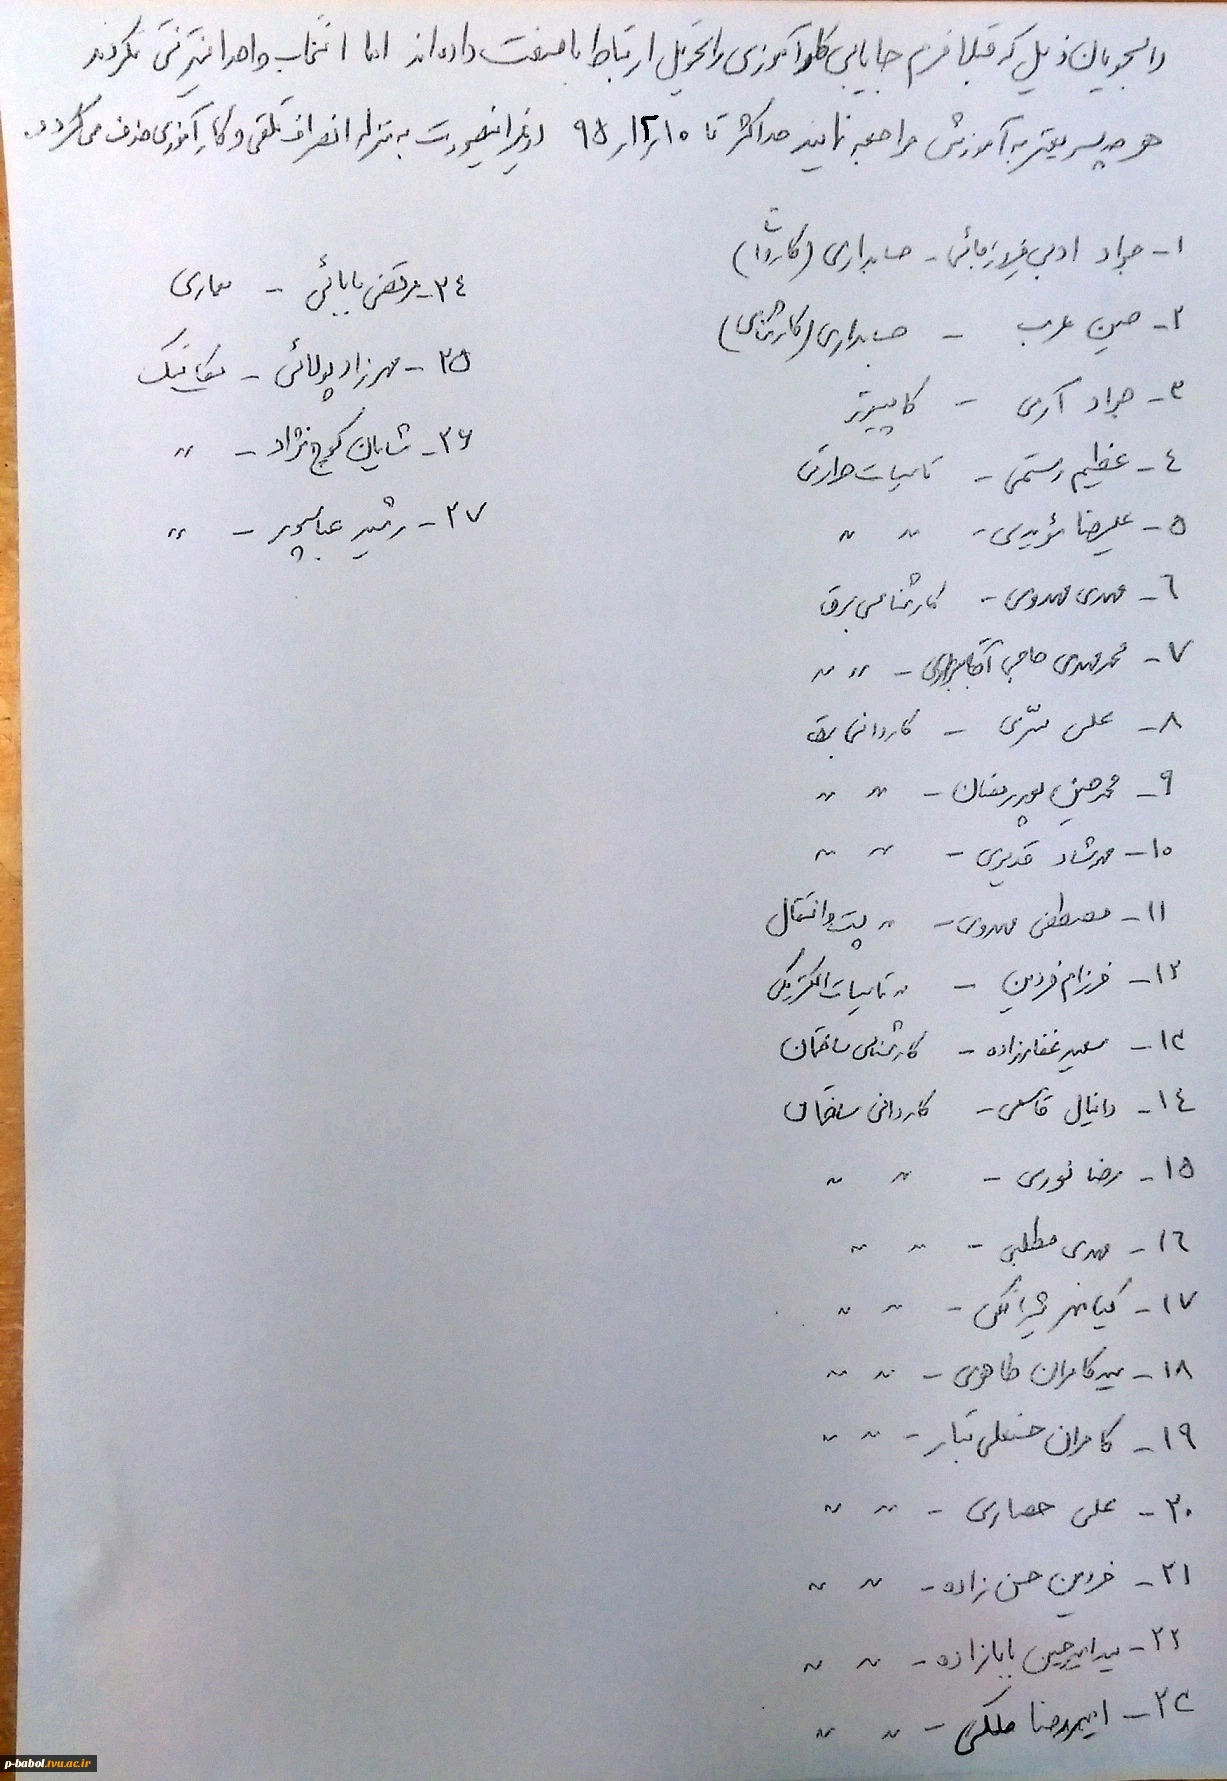 دانشجویان ذیل که قبلا فرم جایابی کارآموزی را تحویل ارتباط با صنعت داده اند اما انتخاب واحد اینترنتی نکردند
هر چه سریعتر به آموزش مراجعه نمایند حداکثر تا ۹۵/۱۲/۱۰ در غیر اینصورت به منزله انصراف تلقی و کارآموزی حذف می گردد.
۱- جواد ادبی فیروزجائی - حسابداری (کاردا)
۲- حسین عرب - حسابداری (کارشناسی)
۳- جواد آرمی - کامپیوتر
۴- عظیم رستمی - تاسیسات حرارتی
۵- علیرضا مؤیدی - " "
۶- مهدی مهدوی - کارشناسی برق
۷- محمدمهدی حاجی آقا - " "
۸- علی - کاردانی برق
۹- محمدحسین پوررمضان - " "
۱۰- مهرشاد قدیری - " "
۱۱- مصطفی مهدوی - " پست و انتقال
۱۲- فرزام فردین - " تاسیسات الکتریکی
۱۳- سعید غفارزاده - کارشناسی ساختمان
۱۴- دانیال قاسمی - کاردانی ساختمان
۱۵- رضا نوری - " "
۱۶- مهدی مطلبی - " "
۱۷- کیامهر - " "
۱۸- سید کامران طاهری - " "
۱۹- کامران حسنعلی تبار - " "
۲۰- علی حصاری - " "
۲۱- فردین حسن زاده - " "
۲۲- سیدامیرحسین بابازاده - " "
۲۳- امیررضا ملکی - " "
۲۴- مرتضی بابائی - معماری
۲۵- مهرزاد پولائی - مکانیک
۲۶- شایان کوچ نژاد - "
۲۷- رشید عباسپور - "
p-babol.tvu.ac.ir